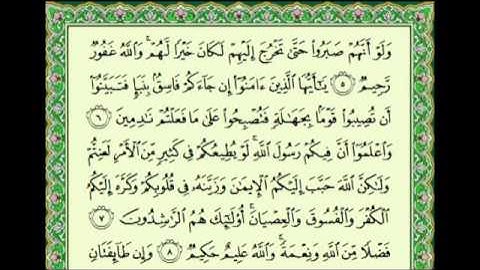 وَلَوْ أَنَّهُمْ صَبَرُوا۟ حَتَّىٰ تَخْرُجَ إِلَيْهِمْ لَكَانَ خَيْرًا لَّهُمْ ۚ وَٱللَّهُ غَفُورٌ
رَّحِيمٌ ٥ يَـٰٓأَيُّهَا ٱلَّذِينَ ءَامَنُوٓا۟ إِن جَآءَكُمْ فَاسِقٌۢ بِنَبَإٍ فَتَبَيَّنُوٓا۟
أَن تُصِيبُوا۟ قَوْمًۢا بِجَهَـٰلَةٍ فَتُصْبِحُوا۟ عَلَىٰ مَا فَعَلْتُمْ نَـٰدِمِينَ ٦
وَٱعْلَمُوٓا۟ أَنَّ فِيكُمْ رَسُولَ ٱللَّهِ ۚ لَوْ يُطِيعُكُمْ فِى كَثِيرٍ مِّنَ ٱلْأَمْرِ لَعَنِتُّمْ
وَلَـٰكِنَّ ٱللَّهَ حَبَّبَ إِلَيْكُمُ ٱلْإِيمَـٰنَ وَزَيَّنَهُۥ فِى قُلُوبِكُمْ وَكَرَّهَ إِلَيْكُمُ
ٱلْكُفْرَ وَٱلْفُسُوقَ وَٱلْعِصْيَانَ ۚ أُو۟لَـٰٓئِكَ هُمُ ٱلرَّٰشِدُونَ ٧
فَضْلًا مِّنَ ٱللَّهِ وَنِعْمَةً ۚ وَٱللَّهُ عَلِيمٌ حَكِيمٌ ٨ وَإِن طَآئِفَتَانِ